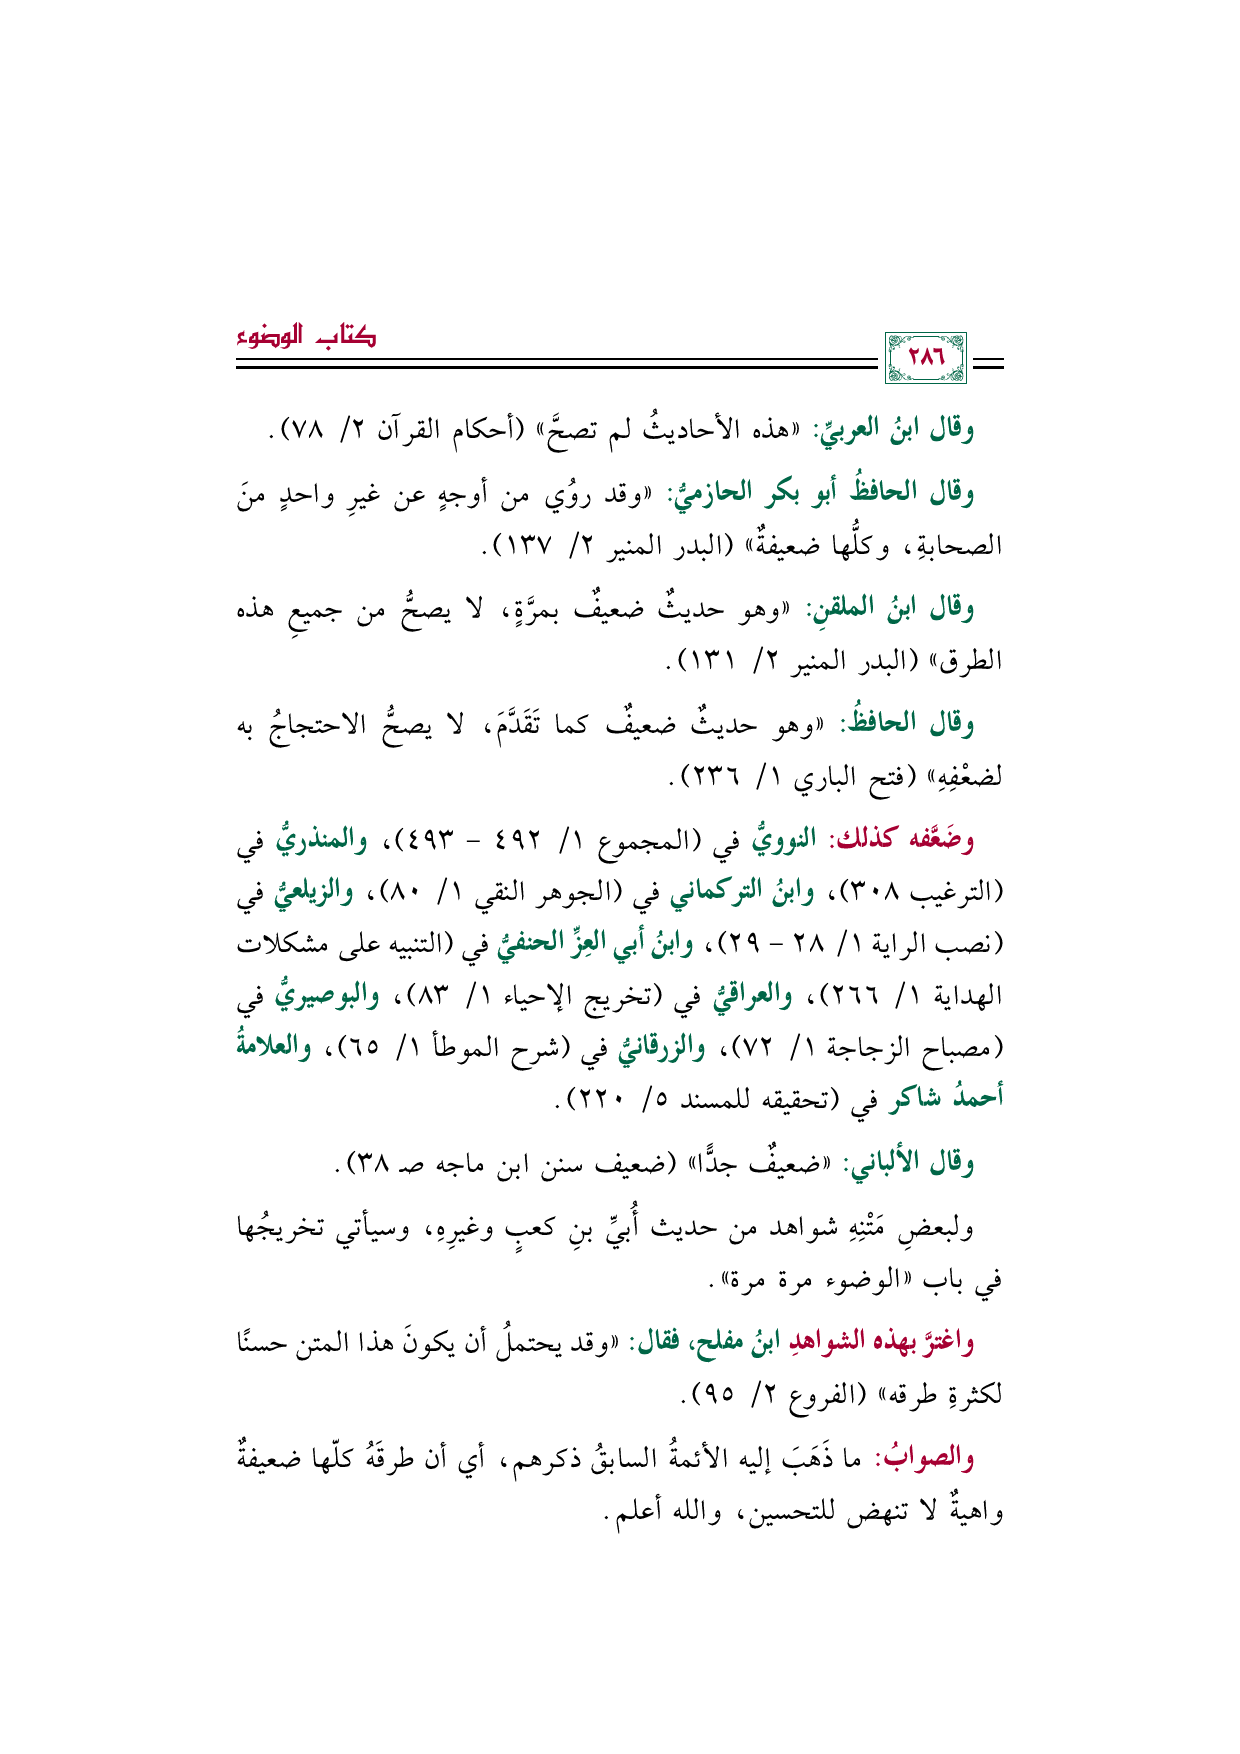 كتاب الوضوء
٢٨٦
وقال ابنُ العربيِّ: «هذه الأحاديثُ لم تصحَّ» (أحكام القرآن ٢/ ٧٨).
وقال الحافظُ أبو بكر الحازميُّ: «وقد روُي من أوجهٍ عن غيرِ واحدٍ منَ
الصحابةِ، وكلُّها ضعيفةٌ» (البدر المنير ٢/ ١٣٧).
وقال ابنُ الملقنِ: «وهو حديثٌ ضعيفٌ بمرَّةٍ، لا يصحُّ من جميعِ هذه
الطرق» (البدر المنير ٢/ ١٣١).
وقال الحافظُ: «وهو حديثٌ ضعيفٌ كما تَقَدَّمَ، لا يصحُّ الاحتجاجُ به
لضعْفِهِ» (فتح الباري ١/ ٢٣٦).
وضَعَّفه كذلك: النوويُّ في (المجموع ١/ ٤٩٢ – ٤٩٣)، والمنذريُّ في
(الترغيب ٣٠٨)، وابنُ التركماني في (الجوهر النقي ١/ ٨٠)، والزيلعيُّ في
(نصب الراية ١/ ٢٨ – ٢٩)، وابنُ أبي العِزِّ الحنفيُّ في (التنبيه على مشكلات
الهداية ١/ ٢٦٦)، والعراقيُّ في (تخريج الإحياء ١/ ٨٣)، والبوصيريُّ في
(مصباح الزجاجة ١/ ٧٢)، والزرقانيُّ في (شرح الموطأ ١/ ٦٥)، والعلامةُ
أحمدُ شاكر في (تحقيقه للمسند ٥/ ٢٢٠).
وقال الألباني: «ضعيفٌ جدًّا» (ضعيف سنن ابن ماجه صـ ٣٨).
ولبعضِ مَتْنِهِ شواهد من حديث أُبيِّ بنِ كعبٍ وغيرِهِ، وسيأتي تخريجُها
في باب «الوضوء مرة مرة».
واغترَّ بهذه الشواهدِ ابنُ مفلح، فقال: «وقد يحتملُ أن يكونَ هذا المتن حسنًا
لكثرةِ طرقه» (الفروع ٢/ ٩٥).
والصوابُ: ما ذَهَبَ إليه الأئمةُ السابقُ ذكرهم، أي أن طرقَهُ كلّها ضعيفةٌ
واهيةٌ لا تنهض للتحسين، والله أعلم.